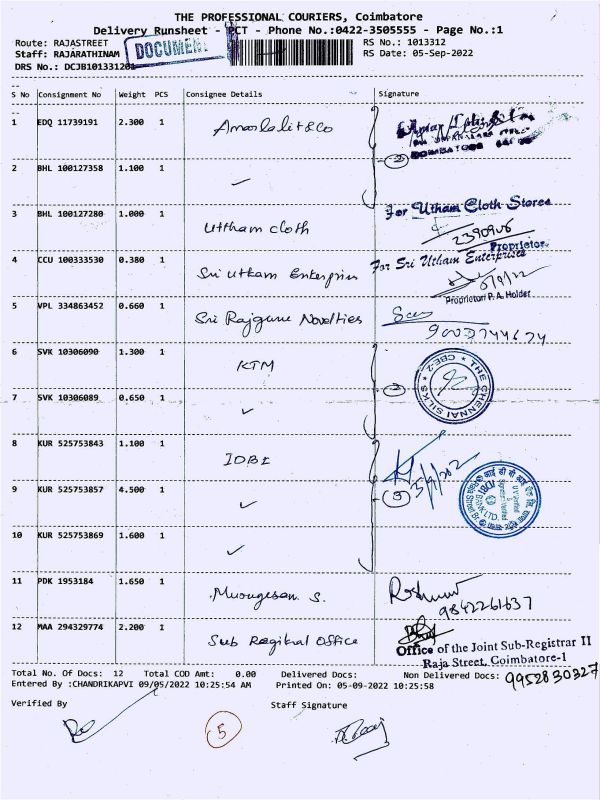 THE PROFESSIONAL COURIERS, Coimbatore
Delivery Runsheet - PCT - Phone No.:0422-3505555 - Page No.:1
Route: RAJASTREET
RS No.: 1013312
Staff: RAJARATHINAM
DOCUMENT
RS Date: 05-Sep-2022
DRS No.: DCJB101331201
S No Consignment No Weight PCS Consignee Details Signature
1 EDQ 11739191 2.300 1 Amarlalit & Co
2
2 BHL 100127358 1.100 1
3 BHL 100127280 1.000 1 Uttham cloth
For Utham Cloth Stores
2390906
Proprietor
4 CCU 100333530 0.380 1 Sri Utham Enterprises
For Sri Utham Enterprises
5/9/22
Proprietor/ P. A. Holder
5 VPL 334863452 0.660 1 Sri Rajguru Novelties
6 SVK 10306090 1.300 1 KTM
THE CHENNAI SILKS * CBE-2 *
7 SVK 10306089 0.650 1
8 KUR 525753843 1.100 1 IDBI
9 KUR 525753857 4.500 1
3
IDBI BANK LTD.
10 KUR 525753869 1.600 1
11 PDK 1953184 1.650 1 Murugesan S.
9842261637
12 MAA 294329774 2.200 1 Sub Regitral Office
Office of the Joint Sub-Registrar II
Raja Street, Coimbatore-1
Total No. Of Docs: 12 Total COD Amt: 0.00 Delivered Docs: Non Delivered Docs:
9952830327
Entered By :CHANDRIKAPVI 09/05/2022 10:25:54 AM Printed On: 05-09-2022 10:25:58
Verified By
Staff Signature
5